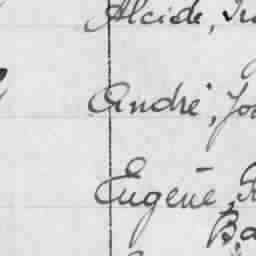 Alcide,
André,
Eugène,